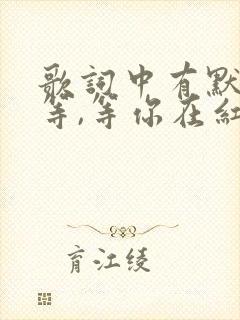 歌詞中有默
等,等你在紅
育江绫